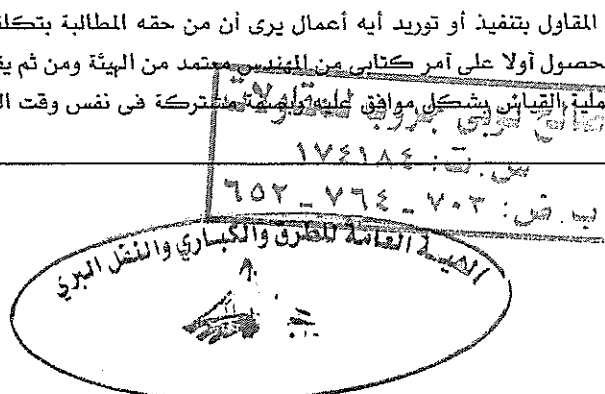 المقاول بتنفيذ أو توريد أيه أعمال يرى أن من حقه المطالبة بتكلف
حصول أولا على أمر كتابى من المهندس معتمد من الهيئة ومن ثم يق
ملية القياس بشكل موافق عليه وبصفة مشتركة فى نفس وقت ال
س.ت: ١٧٤١٨٤
ب.ض: ٧٠٣ - ٧٦٤ - ٦٥٢
الهيئة العامة للطرق والكبارى والنقل البري